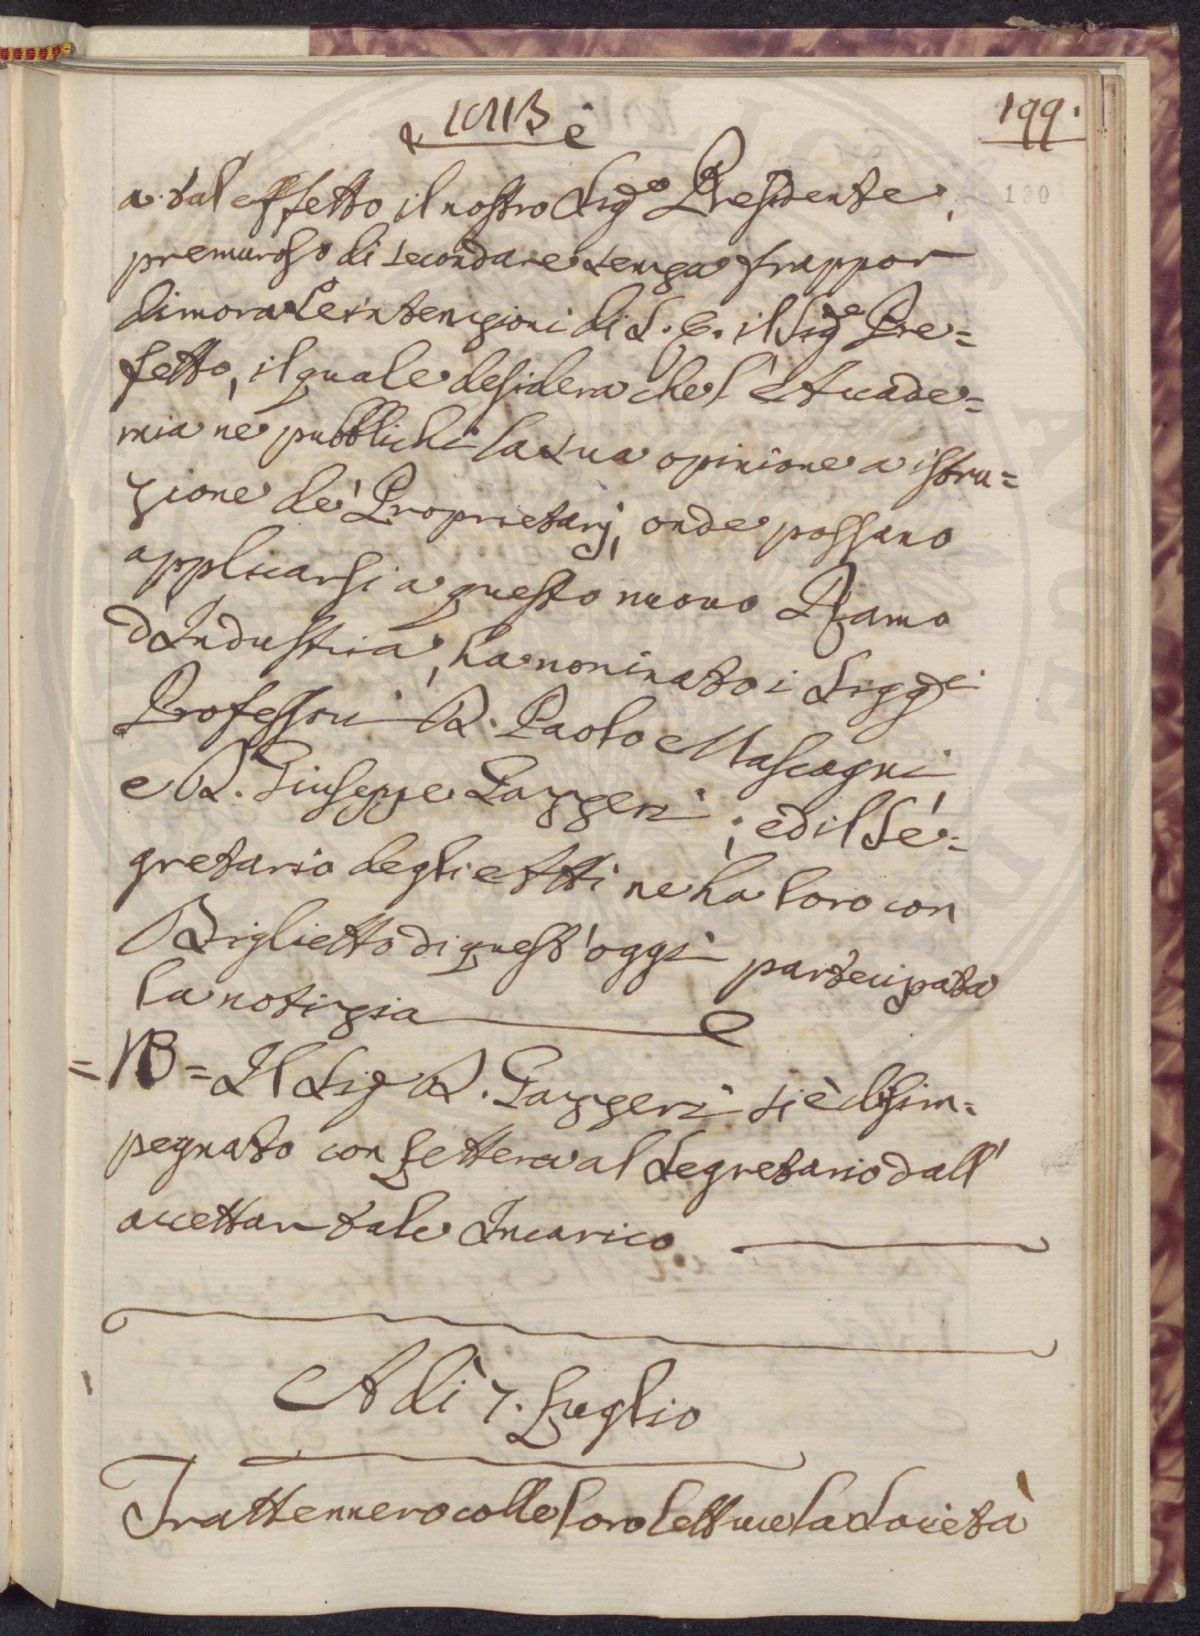 1813
199.
180
a tal effetto il nostro Sig.e Presidente,
premuroso di secondare senza frappor
dimora le intenzioni di S. E. il Sig.e Pre=
fetto, il quale desidera che l'Accade=
mia ne pubblichi la sua opinione a istru=
zione de' Proprietarj, onde possano
applicarsi a questo nuovo Ramo
d'Industria, ha nominato i Sigg.ri
Professori D. Paolo Mascagni
e D. Giuseppe Gazzeri; ed il Se=
gretario degli Atti ne ha loro con
Biglietto di quest'oggi partecipata
la notizia
=NB= Il Sig D. Gazzeri si è disim=
pegnato con Lettera al Segretario dall'
accettar tale Incarico
A dì 7. Luglio
Trattennero colle loro letture la Società